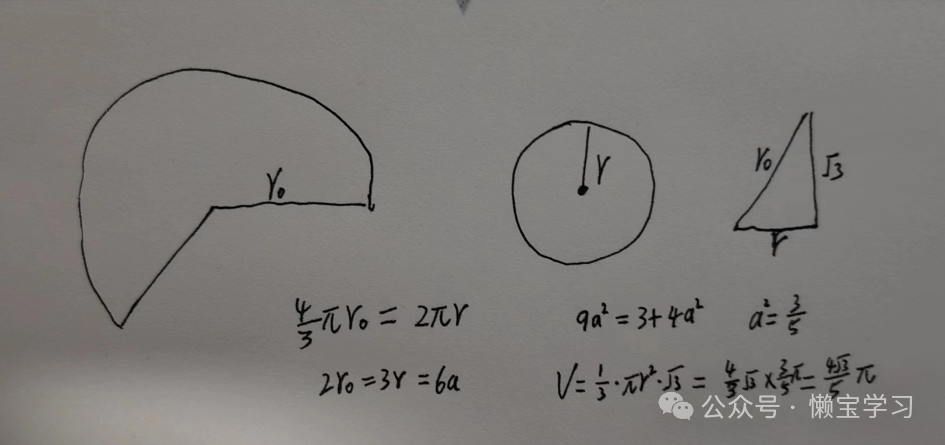 r₀
r
r₀
√3
r
4/3 πr₀ = 2πr
9a² = 3+4a²
a² = 3/5
2r₀ = 3r = 6a
V = 1/3 · πr² · √3 = 4/3 √3 × 3/5 π = 4√3/5 π
公众号 · 懒宝学习